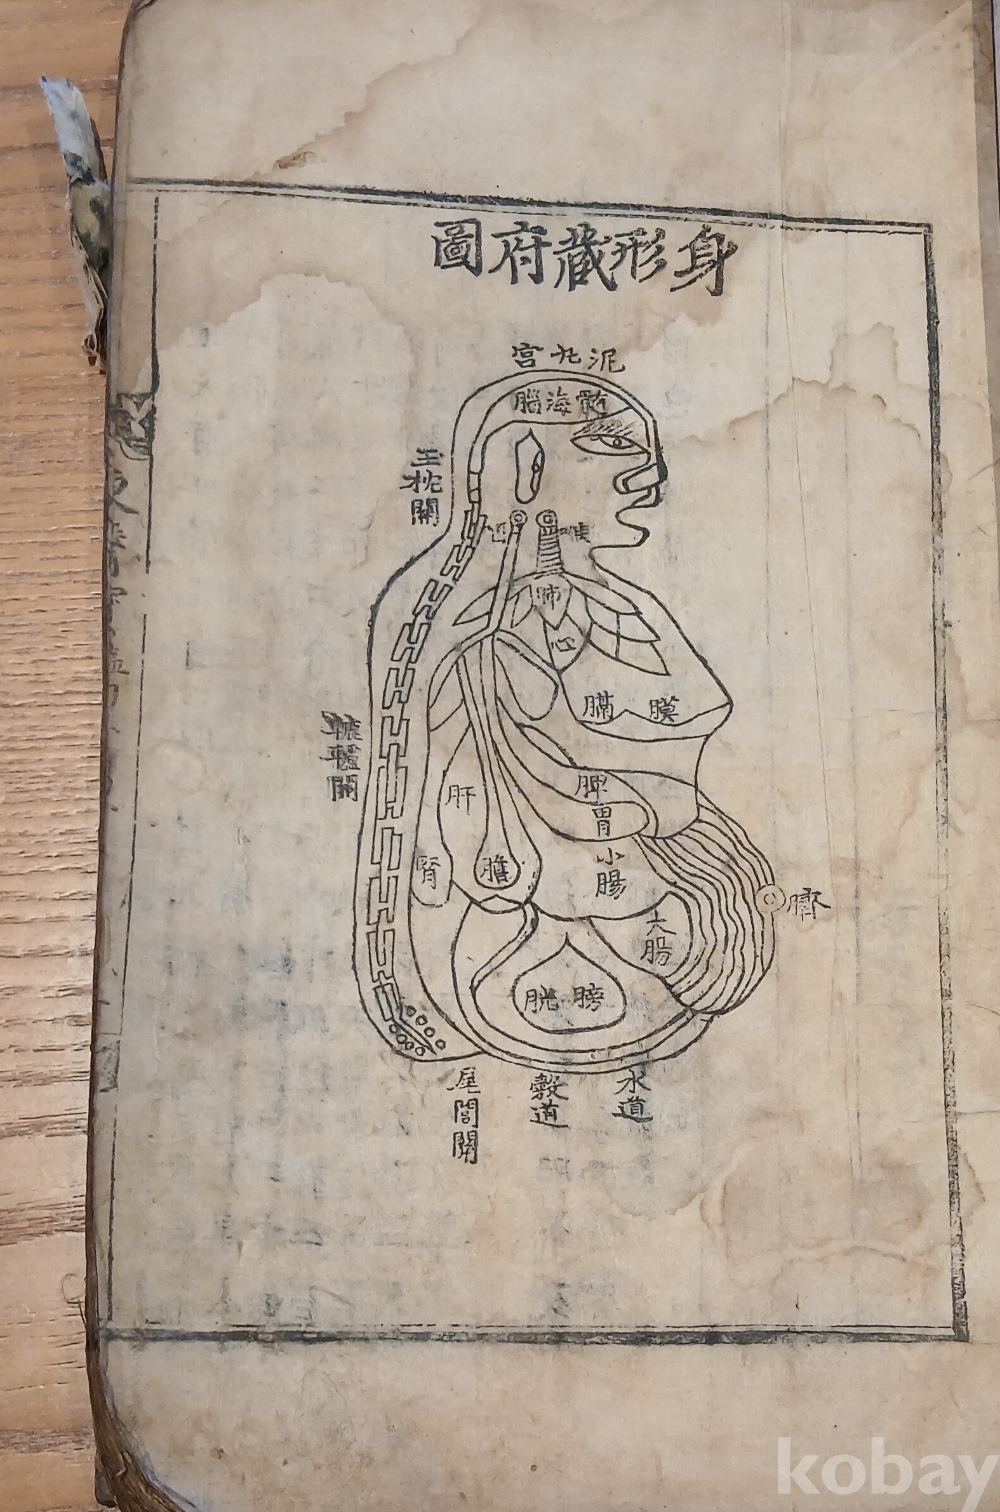 身形藏府圖
泥丸宮
髓海腦
玉枕關
咽
喉
肺
心
膈膜
轆轤關
肝
脾
胃
腎
膽
小
腸
臍
大
腸
膀胱
尾閭關
穀道
水道
kobay